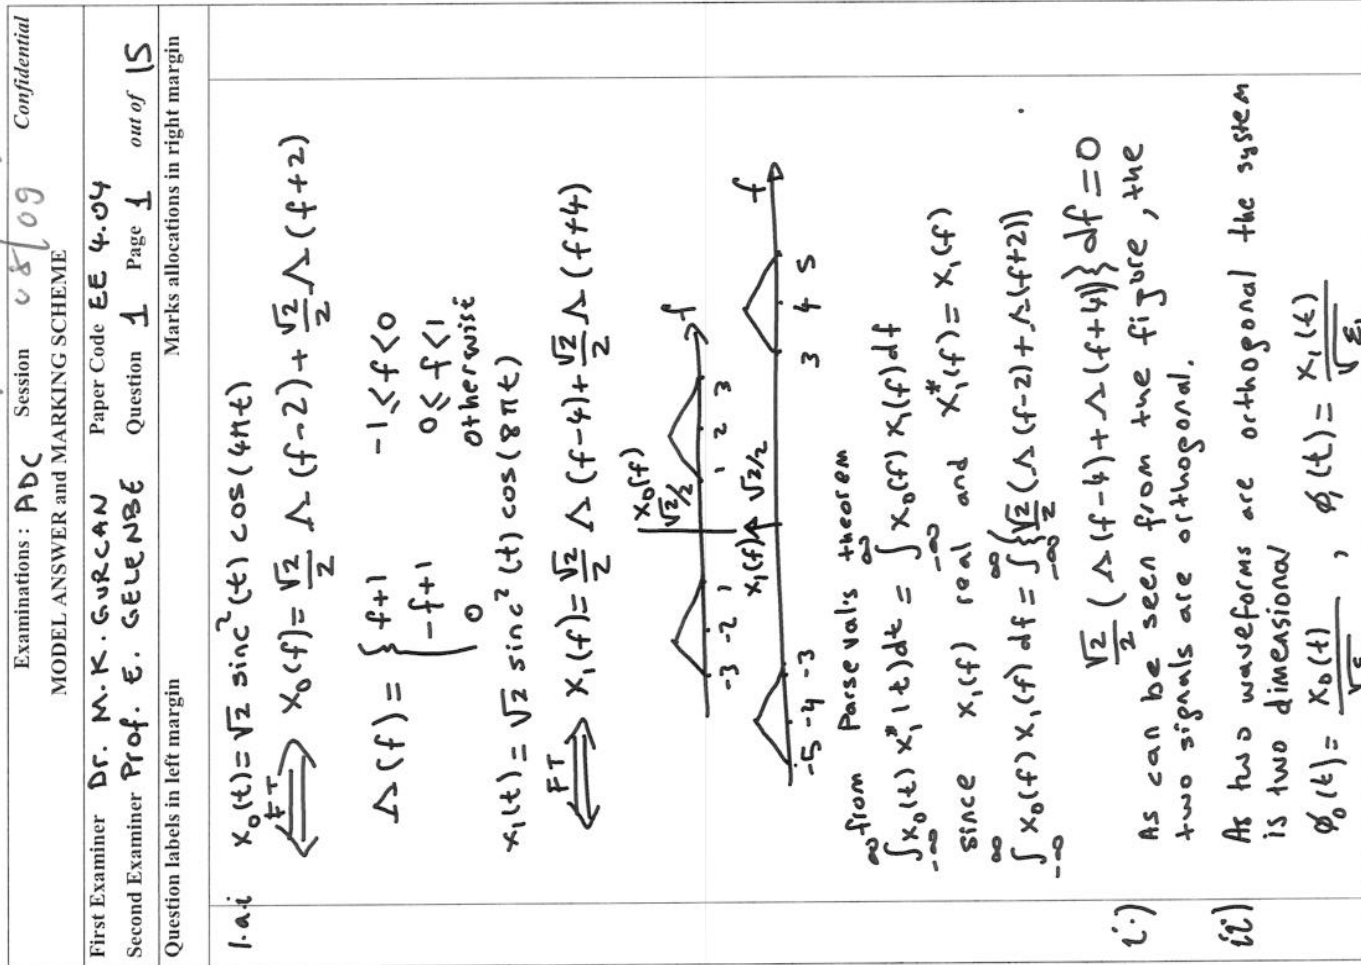 Examinations : ADC Session 08/09 Confidential
MODEL ANSWER and MARKING SCHEME
First Examiner Dr. M.K. GURCAN Paper Code EE 4.04
Second Examiner Prof. E. GELENBE Question 1 Page 1 out of 15
Question labels in left margin Marks allocations in right margin
1.a.i x₀(t)=√2 sinc²(t) cos(4πt)
FT ⟺ X₀(f)= √2/2 Λ(f-2)+ √2/2 Λ(f+2)
Λ(f) = { f+1 -1≤f<0
-f+1 0≤f<1
0 otherwise
x₁(t)=√2 sinc²(t) cos(8πt)
FT ⟺ X₁(f)= √2/2 Λ(f-4)+ √2/2 Λ(f+4)
X₀(f)
√2/2 f
-3 -2 1 1 2 3
X₁(f) √2/2 f
-5 -4 -3 3 4 5
from Parseval's theorem
∫_{-∞}^{∞} x₀(t) x₁*(t)dt = ∫_{-∞}^{∞} X₀(f) X₁(f)df
since X₁(f) real and X₁*(f)= X₁(f)
∫_{-∞}^{∞} X₀(f) X₁(f) df = ∫_{-∞}^{∞} {√2/2 (Λ(f-2)+Λ(f+2))
√2/2 (Λ(f-4)+Λ(f+4))} df = 0
i.) As can be seen from the figure, the
two signals are orthogonal.
ii) As two waveforms are orthogonal the system
is two dimensional
φ₀(t)= x₀(t)/√ε , φ₁(t)= x₁(t)/√ε₁